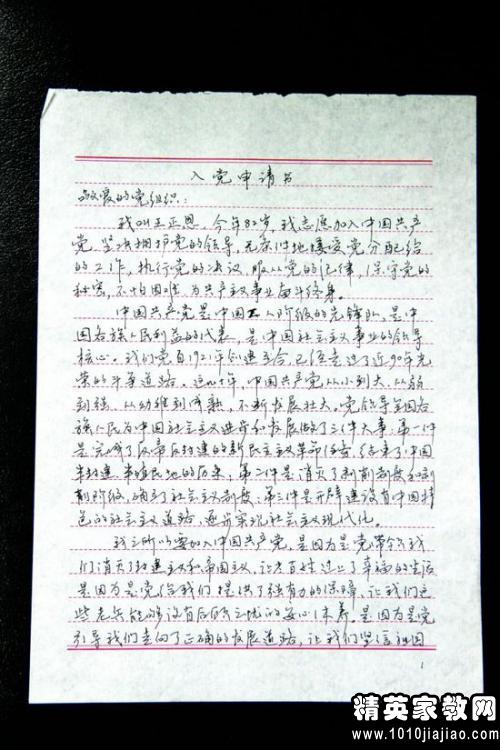 入党申请书
敬爱的党组织:
我叫王正恩,今年82岁,我志愿加入中国共产
党,坚决拥护党的领导,无条件地接受党分配给
的工作,执行党的决议,服从党的纪律,保守党的
秘密,不怕困难,为共产主义事业奋斗终身。
中国共产党是中国工人阶级的先锋队,是中
国各族人民利益的代表,是中国社会主义事业的领导
核心。我们党自1921年创建至今,已经走过了近90年光
荣的斗争道路。这九十年,中国共产党从小到大、从弱
到强、从幼稚到成熟,不断发展壮大。党领导全国各
族人民为中国社会主义进步和发展做了三件大事:第一件
是完成了反帝反封建的新民主主义革命任务,结束了中国
半封建、半殖民地的历史,第二件是消灭了剥削制度和剥
削阶级,确立了社会主义制度;第三件是开辟建设有中国特
色的社会主义道路,逐步实现社会主义现代化。
我之所以要加入中国共产党,是因为是党带领我
们消灭了封建主义和帝国主义,让老百姓过上了幸福的生活
是因为是党给我们提供了强有力的保障,让我们这
些老兵能够没有后顾之忧的安心休养。是因为是党
引导我们走向了正确的发展道路,让我们坚信祖国
1
精英家教网
www.1010jiajiao.com